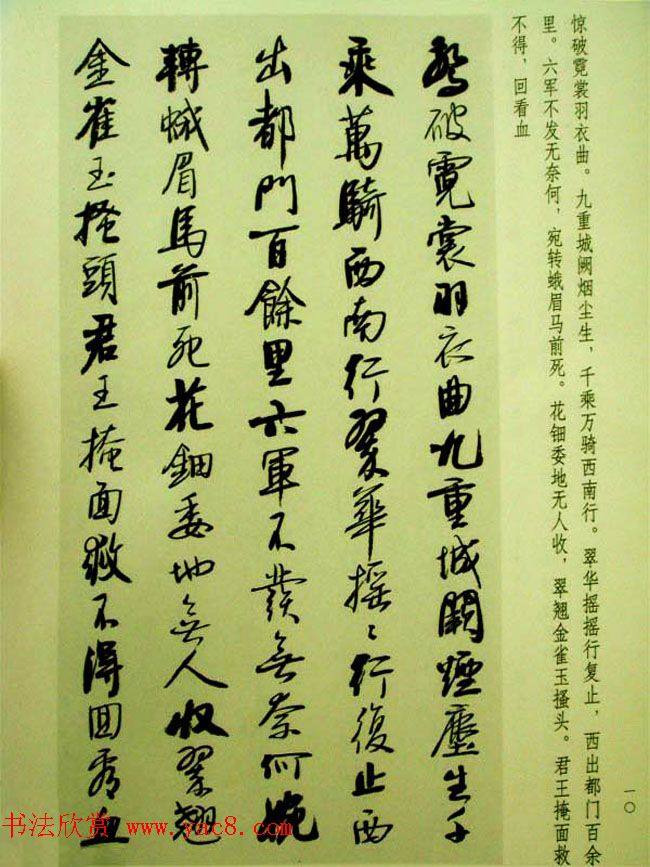 惊破霓裳羽衣曲。九重城阙烟尘生，千乘万骑西南行。翠华摇摇行复止，西出都门百余
里。六军不发无奈何，宛转蛾眉马前死。花钿委地无人收，翠翘金雀玉搔头。君王掩面救
不得，回看血
驚破霓裳羽衣曲九重城闕煙塵生千
乘萬騎西南行翠華搖〻行復止西
出都門百餘里六軍不發無奈何宛
轉蛾眉馬前死花鈿委地無人收翠翹
金雀玉搔頭君王掩面救不得回看血
一〇
书法欣赏 www.yac8.com